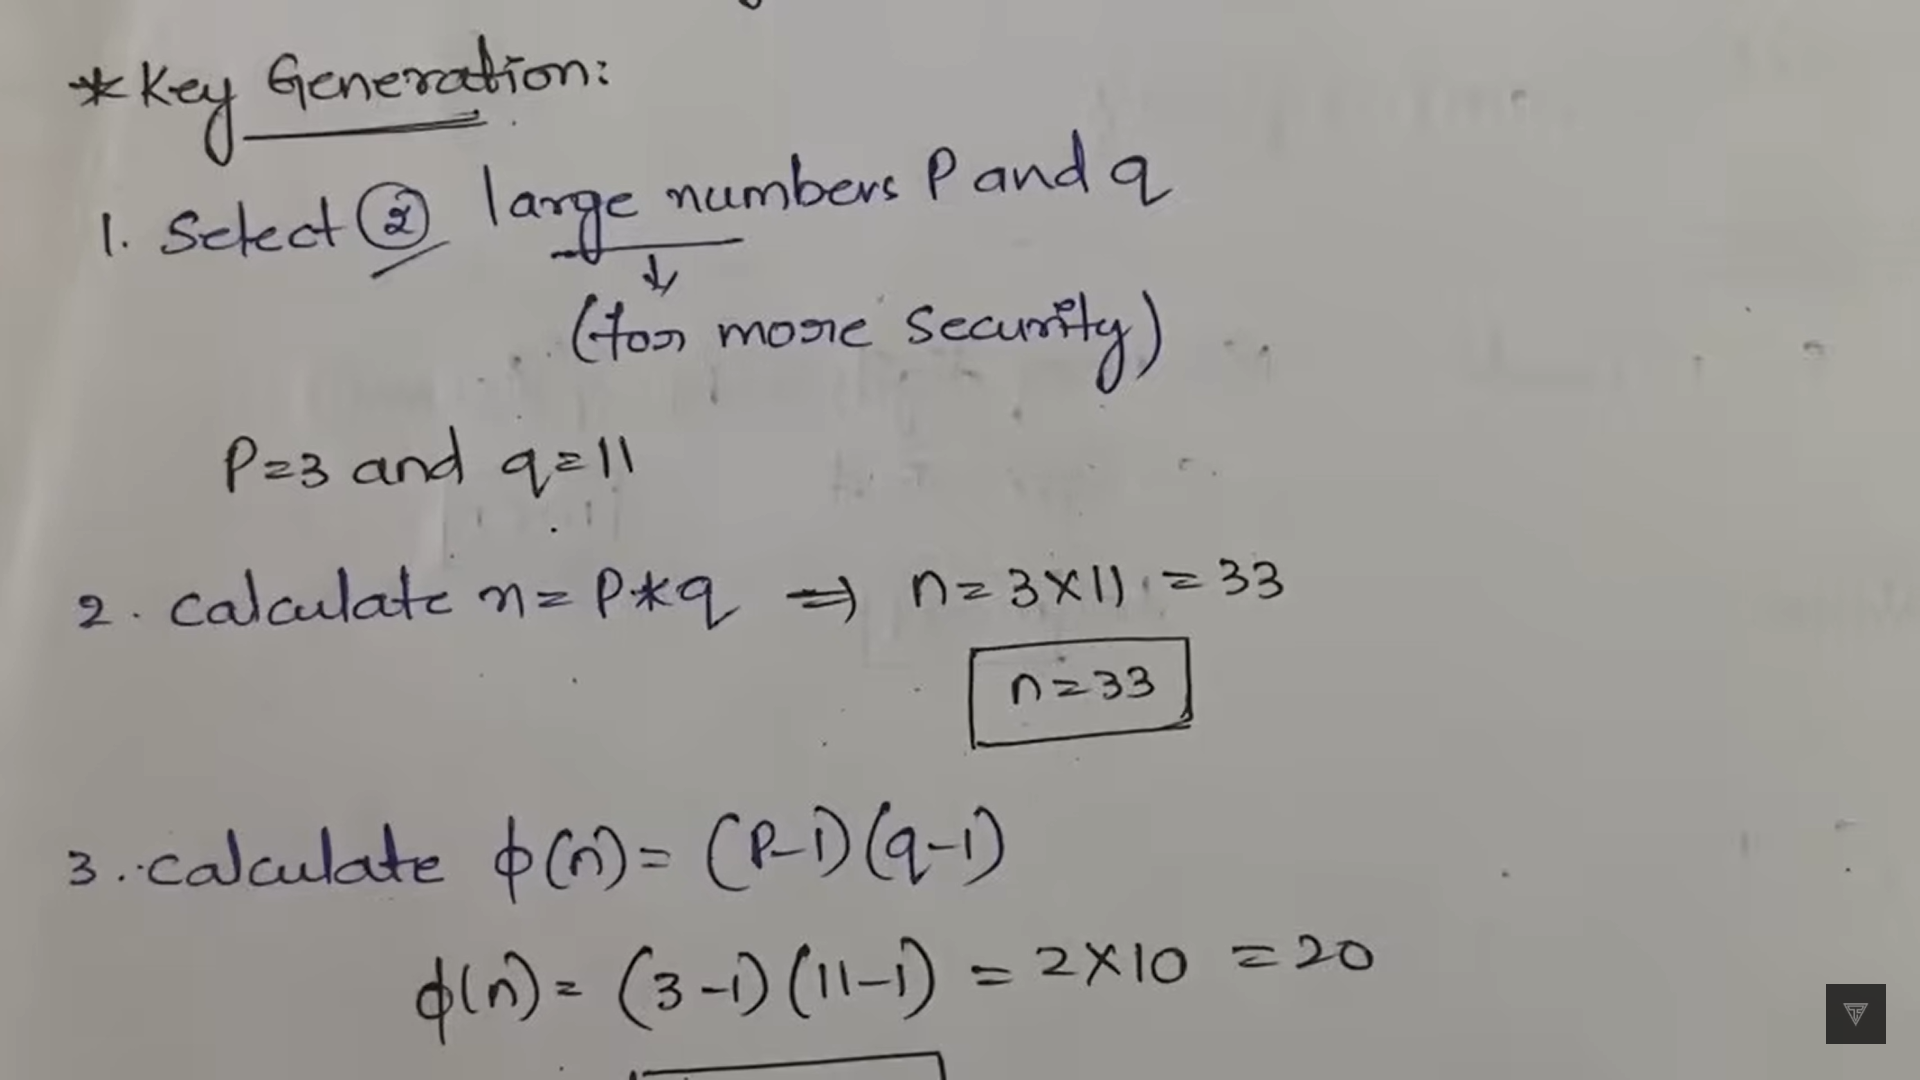 * Key Generation:
1. Select 2 large numbers P and q
(for more security)
P=3 and q=11
2. calculate n = P*q ⇒ n=3×11 = 33
n=33
3. calculate ϕ(n) = (P-1)(q-1)
ϕ(n) = (3-1)(11-1) = 2×10 = 20